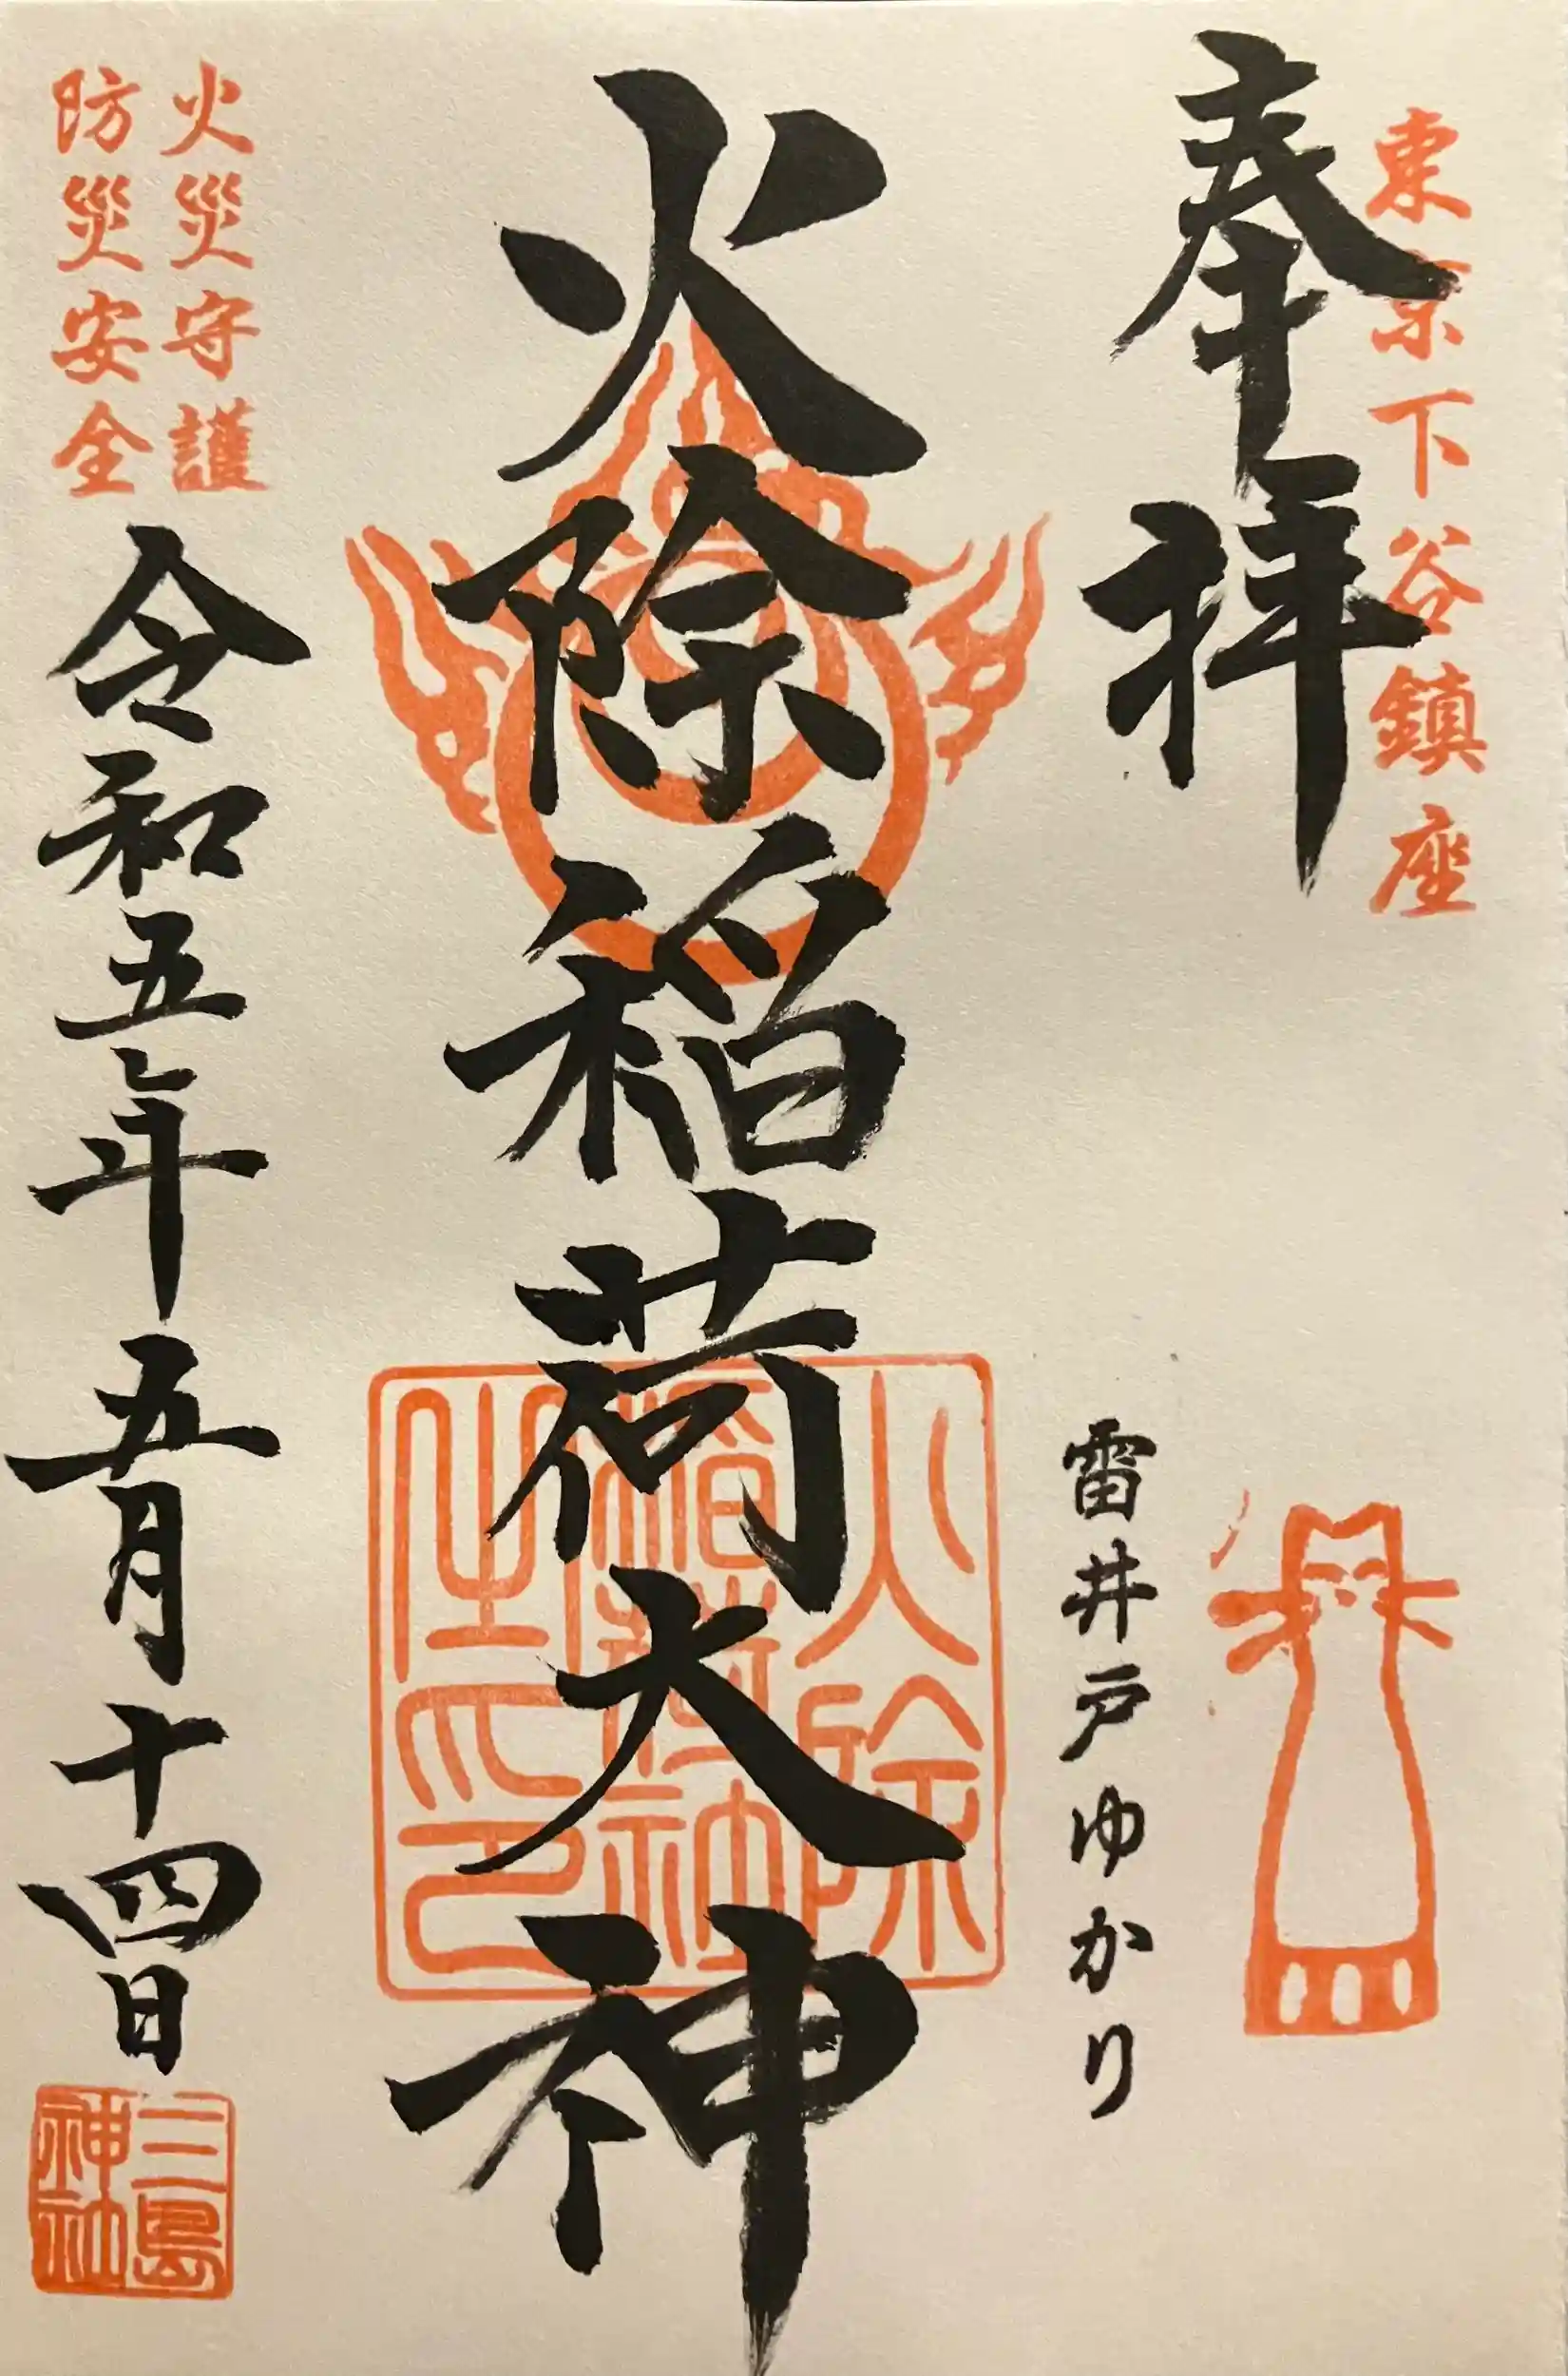 東京下谷鎮座
奉拝
雷井戸ゆかり
火除稲荷大神
火除
稲荷神社
之印
火災守護
防災安全
令和五年五月十四日
三島
神社